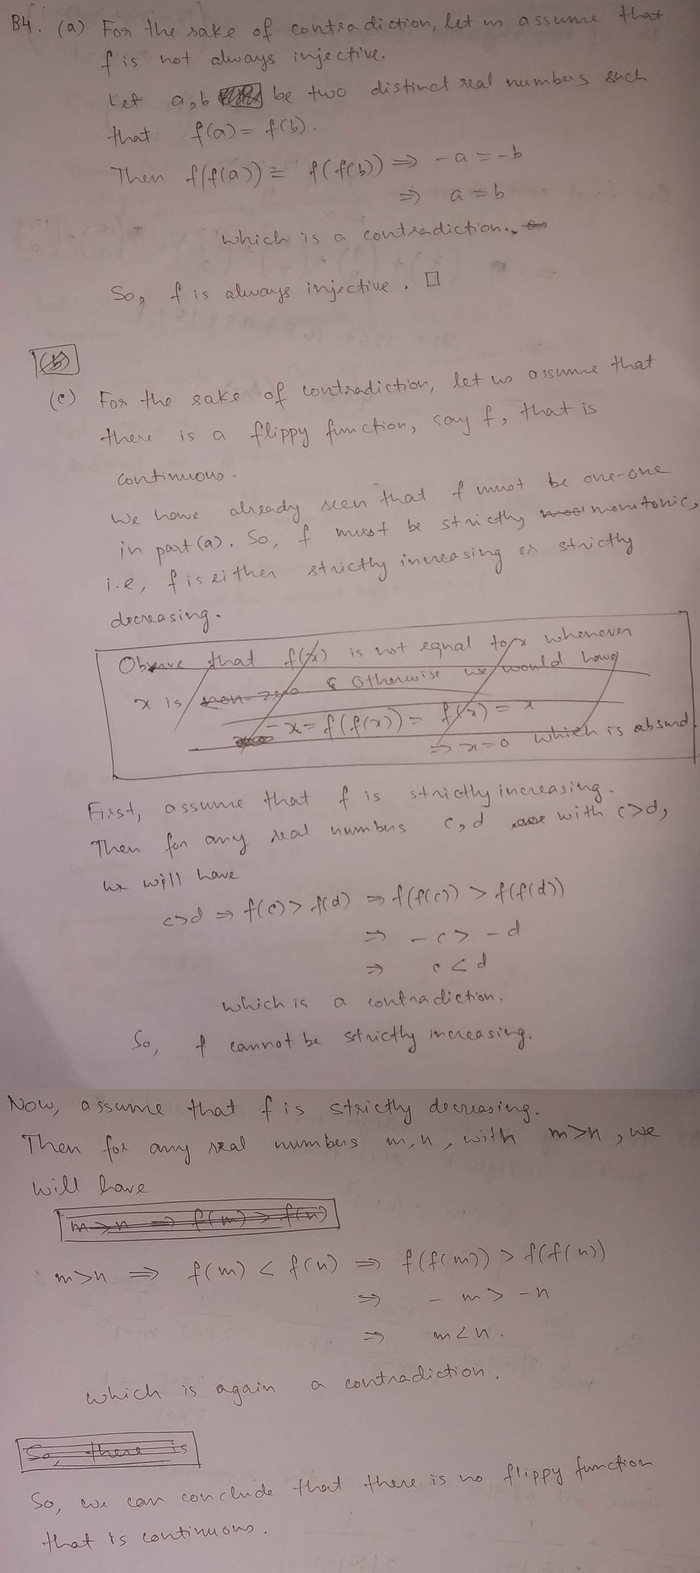 B4. (a) For the sake of contradiction, let us assume that
f is not always injective.
Let a, b be two distinct real numbers such
that f(a) = f(b).
Then f(f(a)) = f(f(b)) ⇒ -a = -b
⇒ a = b
which is a contradiction.
So, f is always injective. □
(b)
(c) For the sake of contradiction, let us assume that
there is a flippy function, say f, that is
continuous.
We have already seen that f must be one-one
in part (a). So, f must be strictly monotonic,
i.e, f is either strictly increasing or strictly
decreasing.
Observe that f(x) is not equal to x whenever
x is non-zero Otherwise we would have
-x = f(f(x)) = f(x) = x
⇒ x = 0 which is absurd.
First, assume that f is strictly increasing.
Then for any real numbers c, d with c>d,
we will have
c>d ⇒ f(c) > f(d) ⇒ f(f(c)) > f(f(d))
⇒ -c > -d
⇒ c < d
which is a contradiction.
So, f cannot be strictly increasing.
Now, assume that f is strictly decreasing.
Then for any real numbers m, n, with m>n, we
will have
m>n ⇒ f(m) > f(n)
m>n ⇒ f(m) < f(n) ⇒ f(f(m)) > f(f(n))
⇒ -m > -n
⇒ m < n.
which is again a contradiction.
So, there is
So, we can conclude that there is no flippy function
that is continuous.